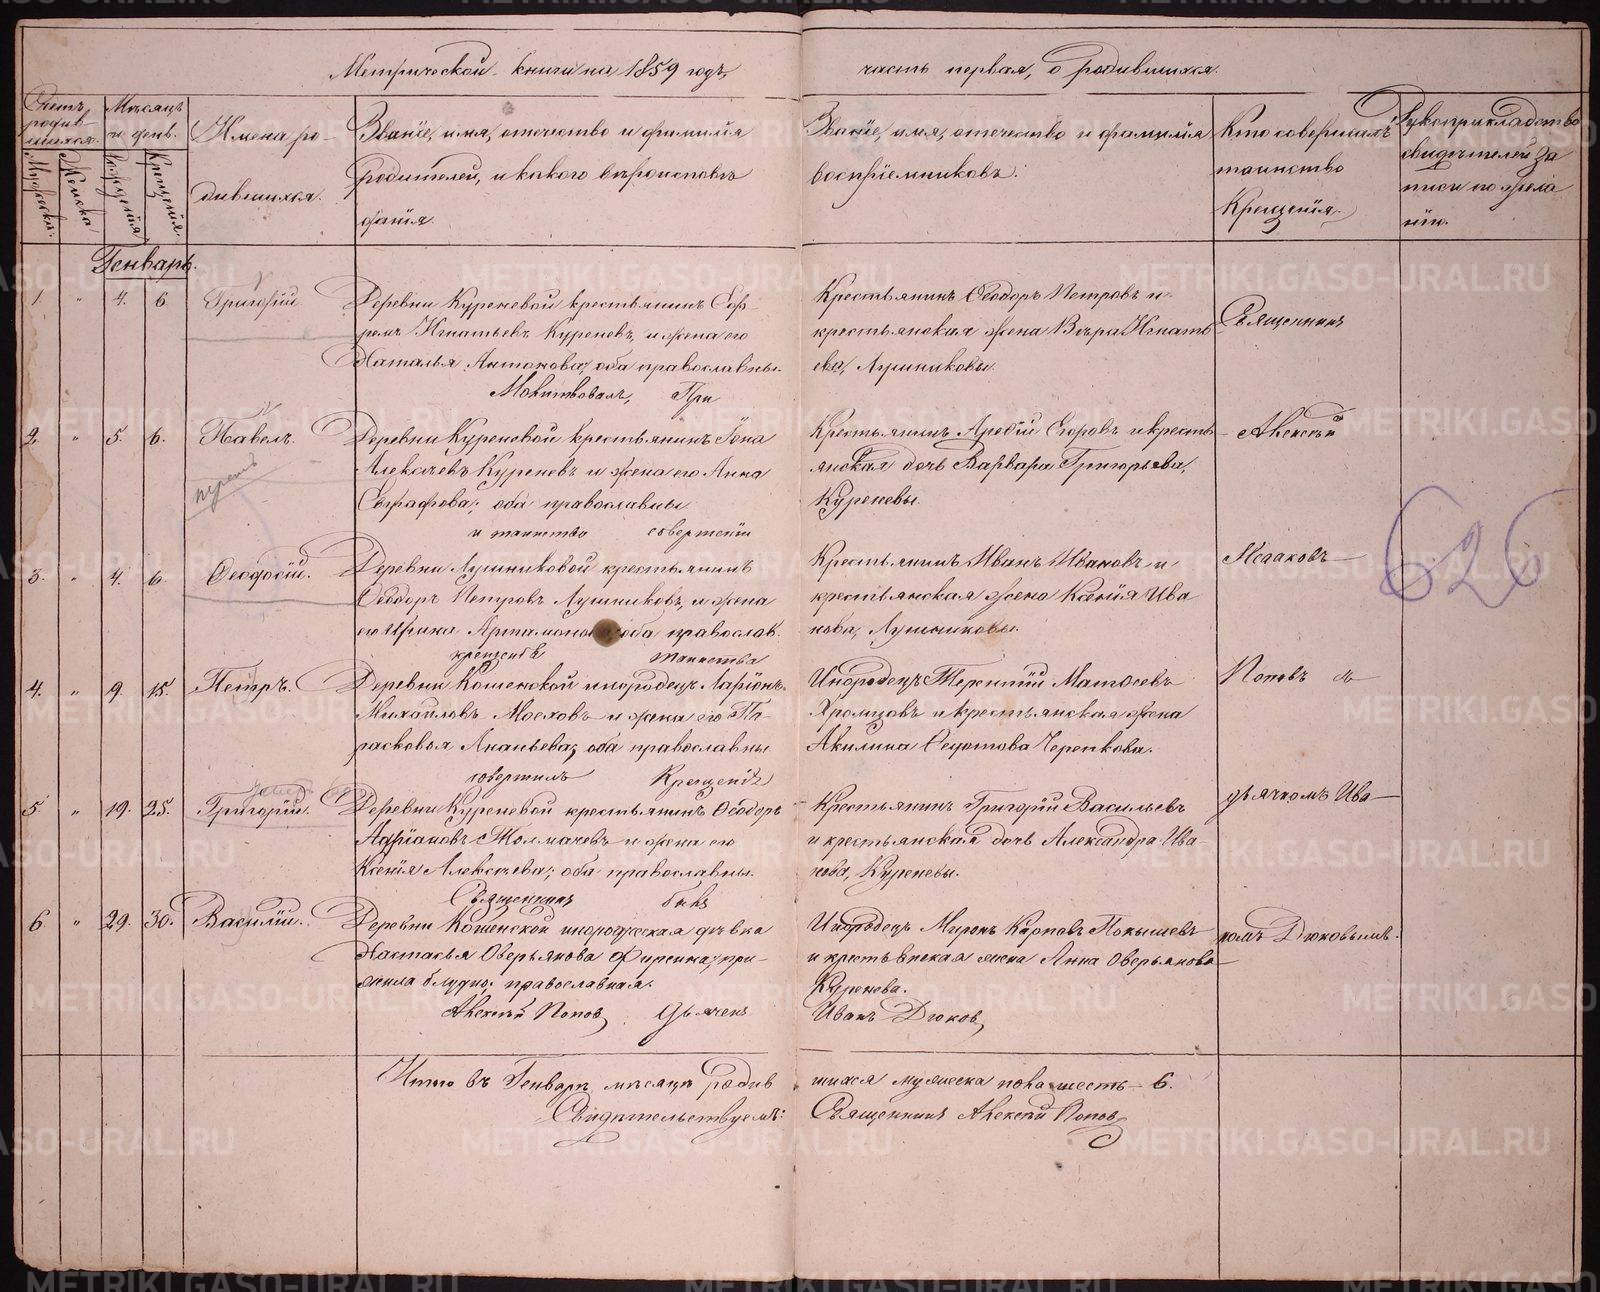 Метрической книги на 1859 годъ, часть первая, о родившихся.
Счетъ родившихся.
Мужеска.
Женска.
Мѣсяцъ и день.
Рожденія.
Крещенія.
Имена родившихся.
Званіе, имя, отечество и фамилія
родителей, и какого вѣроисповѣ
данія.
Званіе, имя, отечество и фамилія
воспріемниковъ.
Кто совершалъ
таинство
Крещенія.
Рукоприкладство
свидѣтелей за
писи по жела
нію.
Генварь.
1. " 4. 6. Григорій
Деревни Куреневой крестьянинъ
Игнатьевъ Куреневъ, и жена его
Наталья Антонова; оба православны.
Крестьянинъ Ѳеодоръ Петровъ и
крестьянская жена Вѣра Игнать
ева, Лушниковы.
Священникъ
Молитвовалъ, При
2. " 5. 6. Павелъ.
Деревни Куреневой крестьянинъ Іона
Алексѣевъ Куреневъ и жена его Анна
Евграфова; оба православны
Крестьянинъ Егоровъ и кресть
янская дочь Варвара Григорьева,
Куреневы.
Алексѣй
и таинство совершеніи
3. " 4. 6. Ѳеодосій.
Деревни Лушниковой крестьянинъ
Ѳеодоръ Петровъ Лушниковъ, и жена
его Ирина оба православ.
Крестьянинъ Иванъ Ивановъ и
крестьянская жена Ксенія Ива
нова, Лушниковы.
626
крещенія таинства
4. " 9. 15. Петръ.
Деревни инородецъ Ларіонъ
Михайловъ и жена его Па
расковья Ананьева; оба православны
Инородецъ Терентій Матвеевъ
и крестьянская жена
Акилина Ѳедотова Черепкова.
Поповъ съ
совершилъ Крещеніе
5 " 19. 25. Григорій.
Деревни Куреневой крестьянинъ Ѳеодоръ
Адріановъ Толмачевъ и жена его
Ксенія Алексѣева; оба православны.
Крестьянинъ Григорій Васильевъ
и крестьянская дочь Александра Ива
нова, Куреневы.
дьячкомъ Ива
Священникъ
6 " 29. 30. Василій.
Деревни инородческая дѣвка
Настасья Оверьянова при
жила блудно; православная.
Инородецъ Миронъ Карповъ
и крестьянская жена Анна Оверьянова
Куренева.
номъ Дюковымъ.
Алексѣй Поповъ, Дьячекъ Иванъ Дюковъ,
Итого въ Генварѣ мѣсяцѣ родив шихся мужеска пола шесть – 6.
Свидѣтельствуемъ: Священникъ Алексѣй Поповъ
METRIKI.GASO-URAL.RU